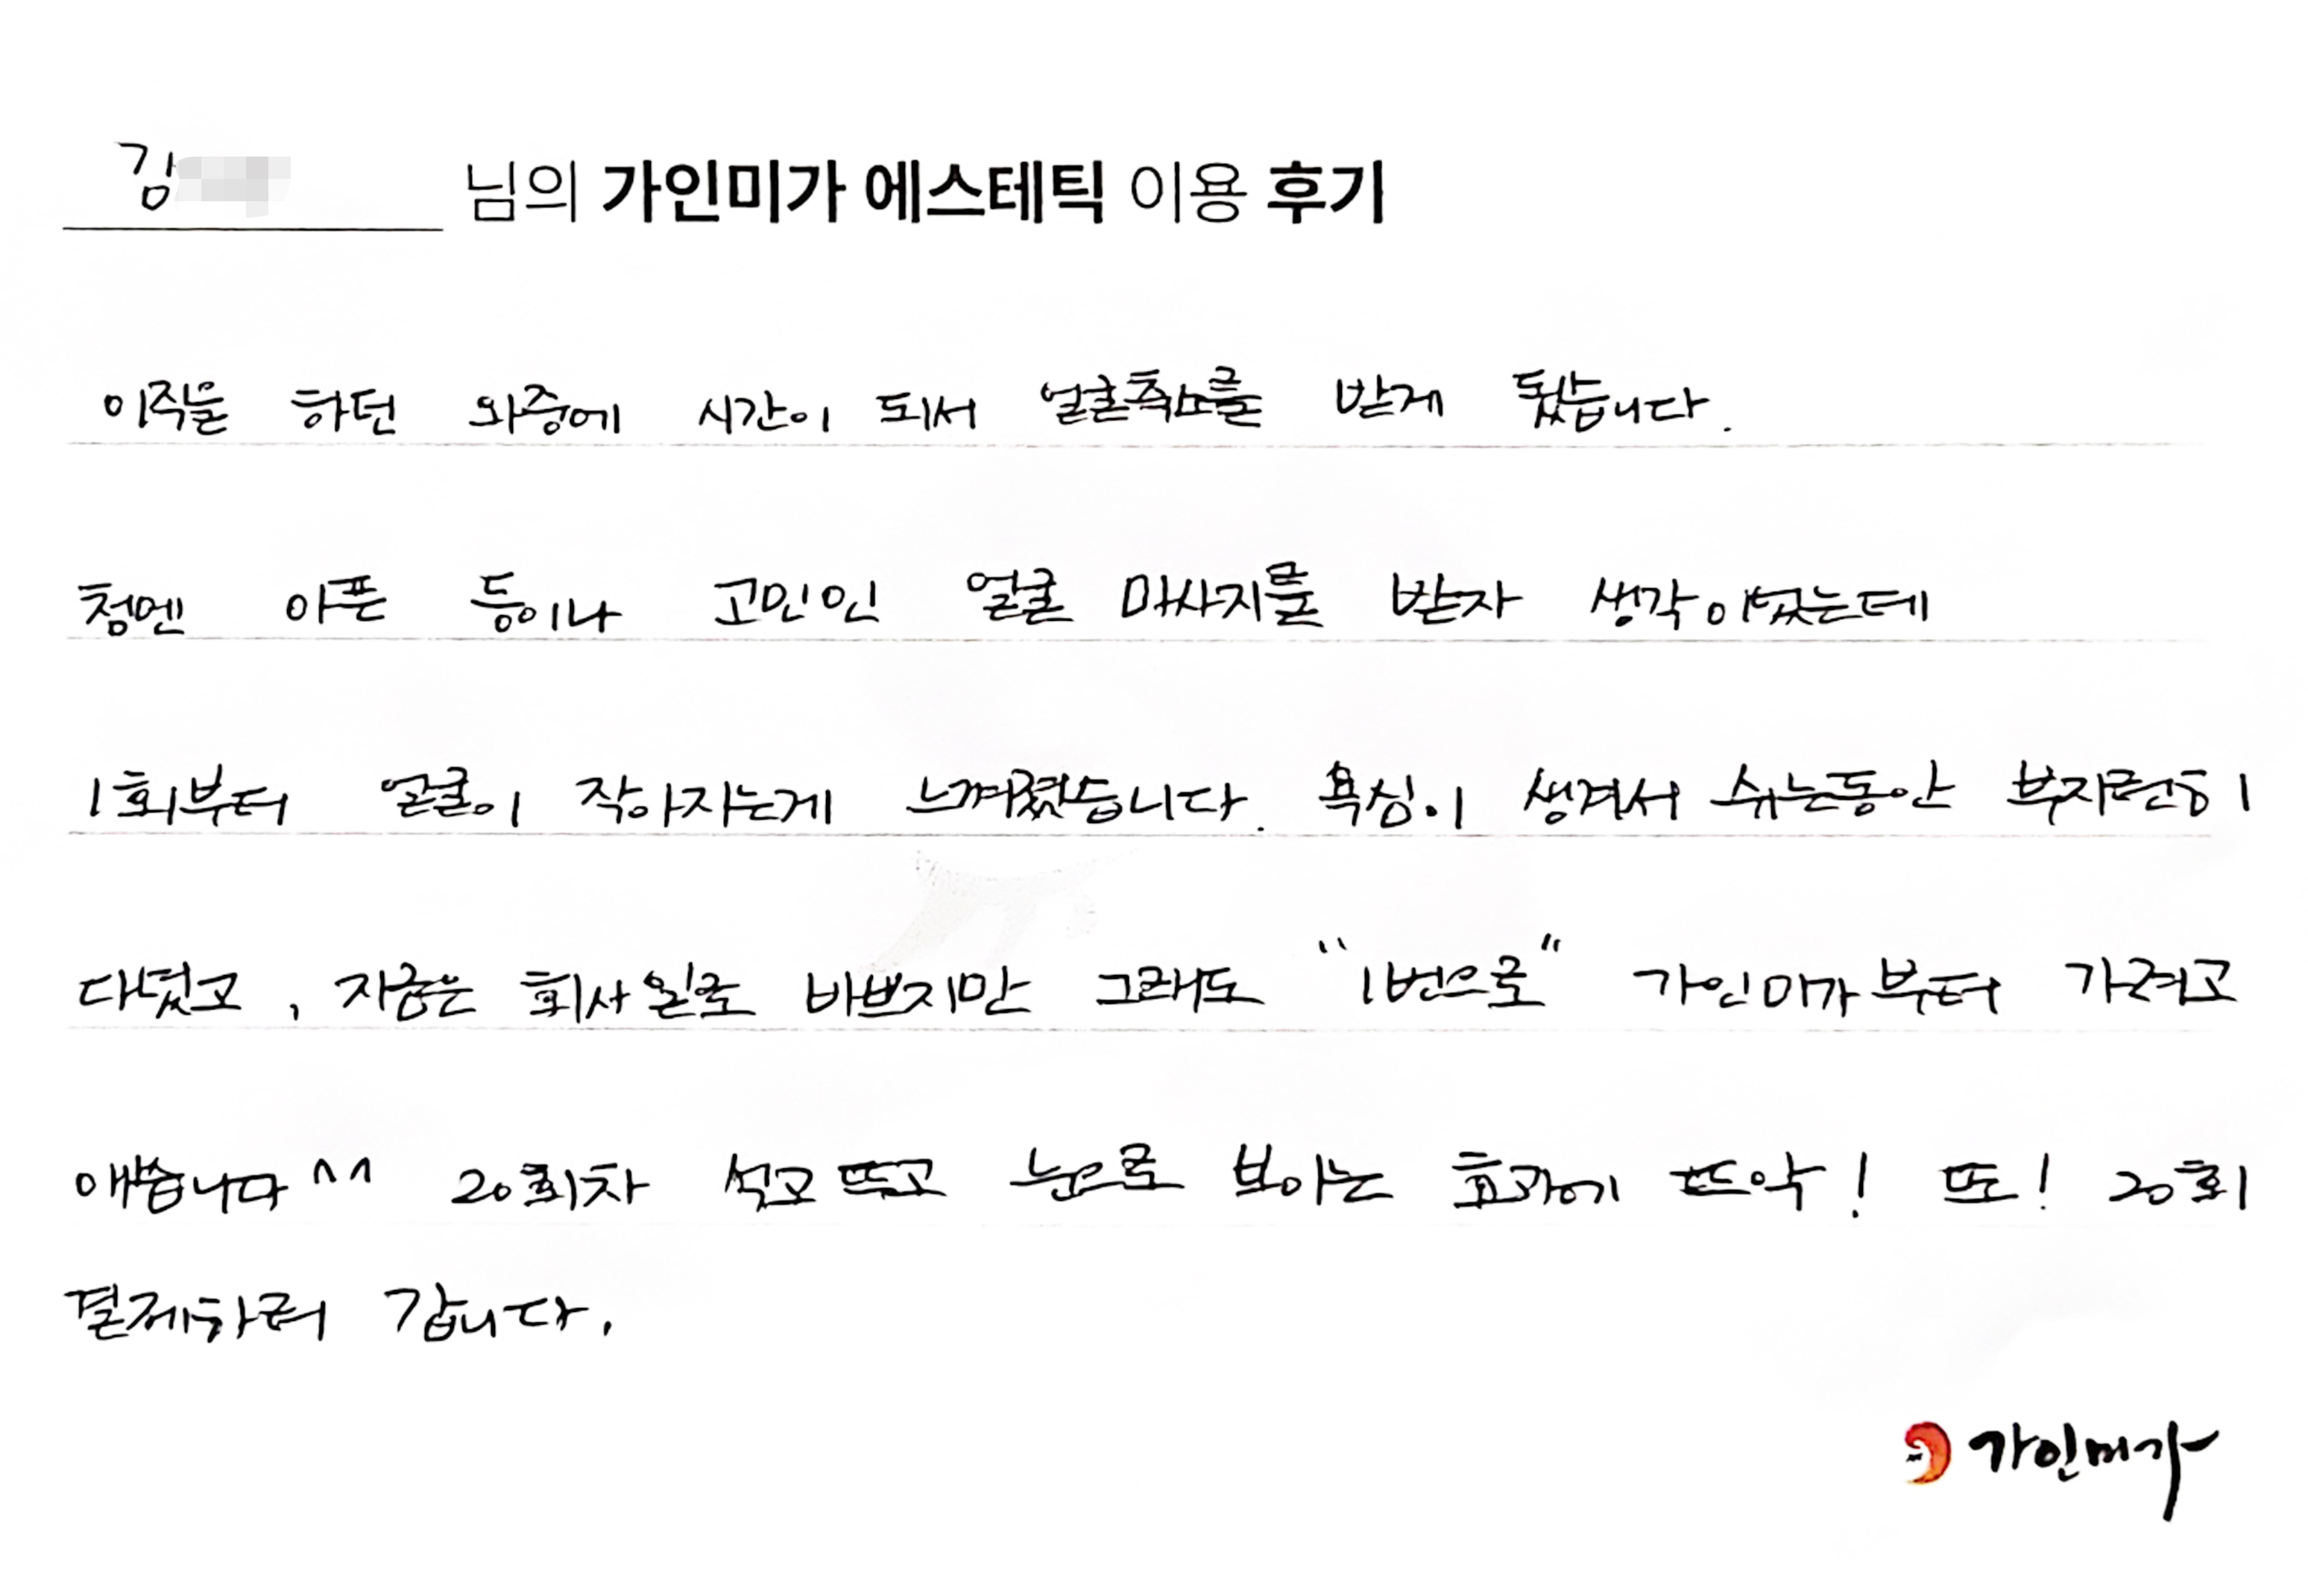 김 님의 가인미가 에스테틱 이용 후기
이직을 하던 와중에 시간이 되서 얼굴축소를 받게 됐습니다.
첨엔 아픈 등이나 고민인 얼굴 마사지를 받자 생각이였는데
1회부터 얼굴이 작아지는게 느껴졌습니다. 욕심이 생겨서 쉬는동안 부지런히
다녔고, 지금은 회사일로 바쁘지만 그래도 "1번으로" 가인미가부터 가려고
애씁니다^^ 20회차 석고 뜨고 눈으로 보이는 효과에 뜨악! 또! 20회
결제하러 갑니다.
가인미가